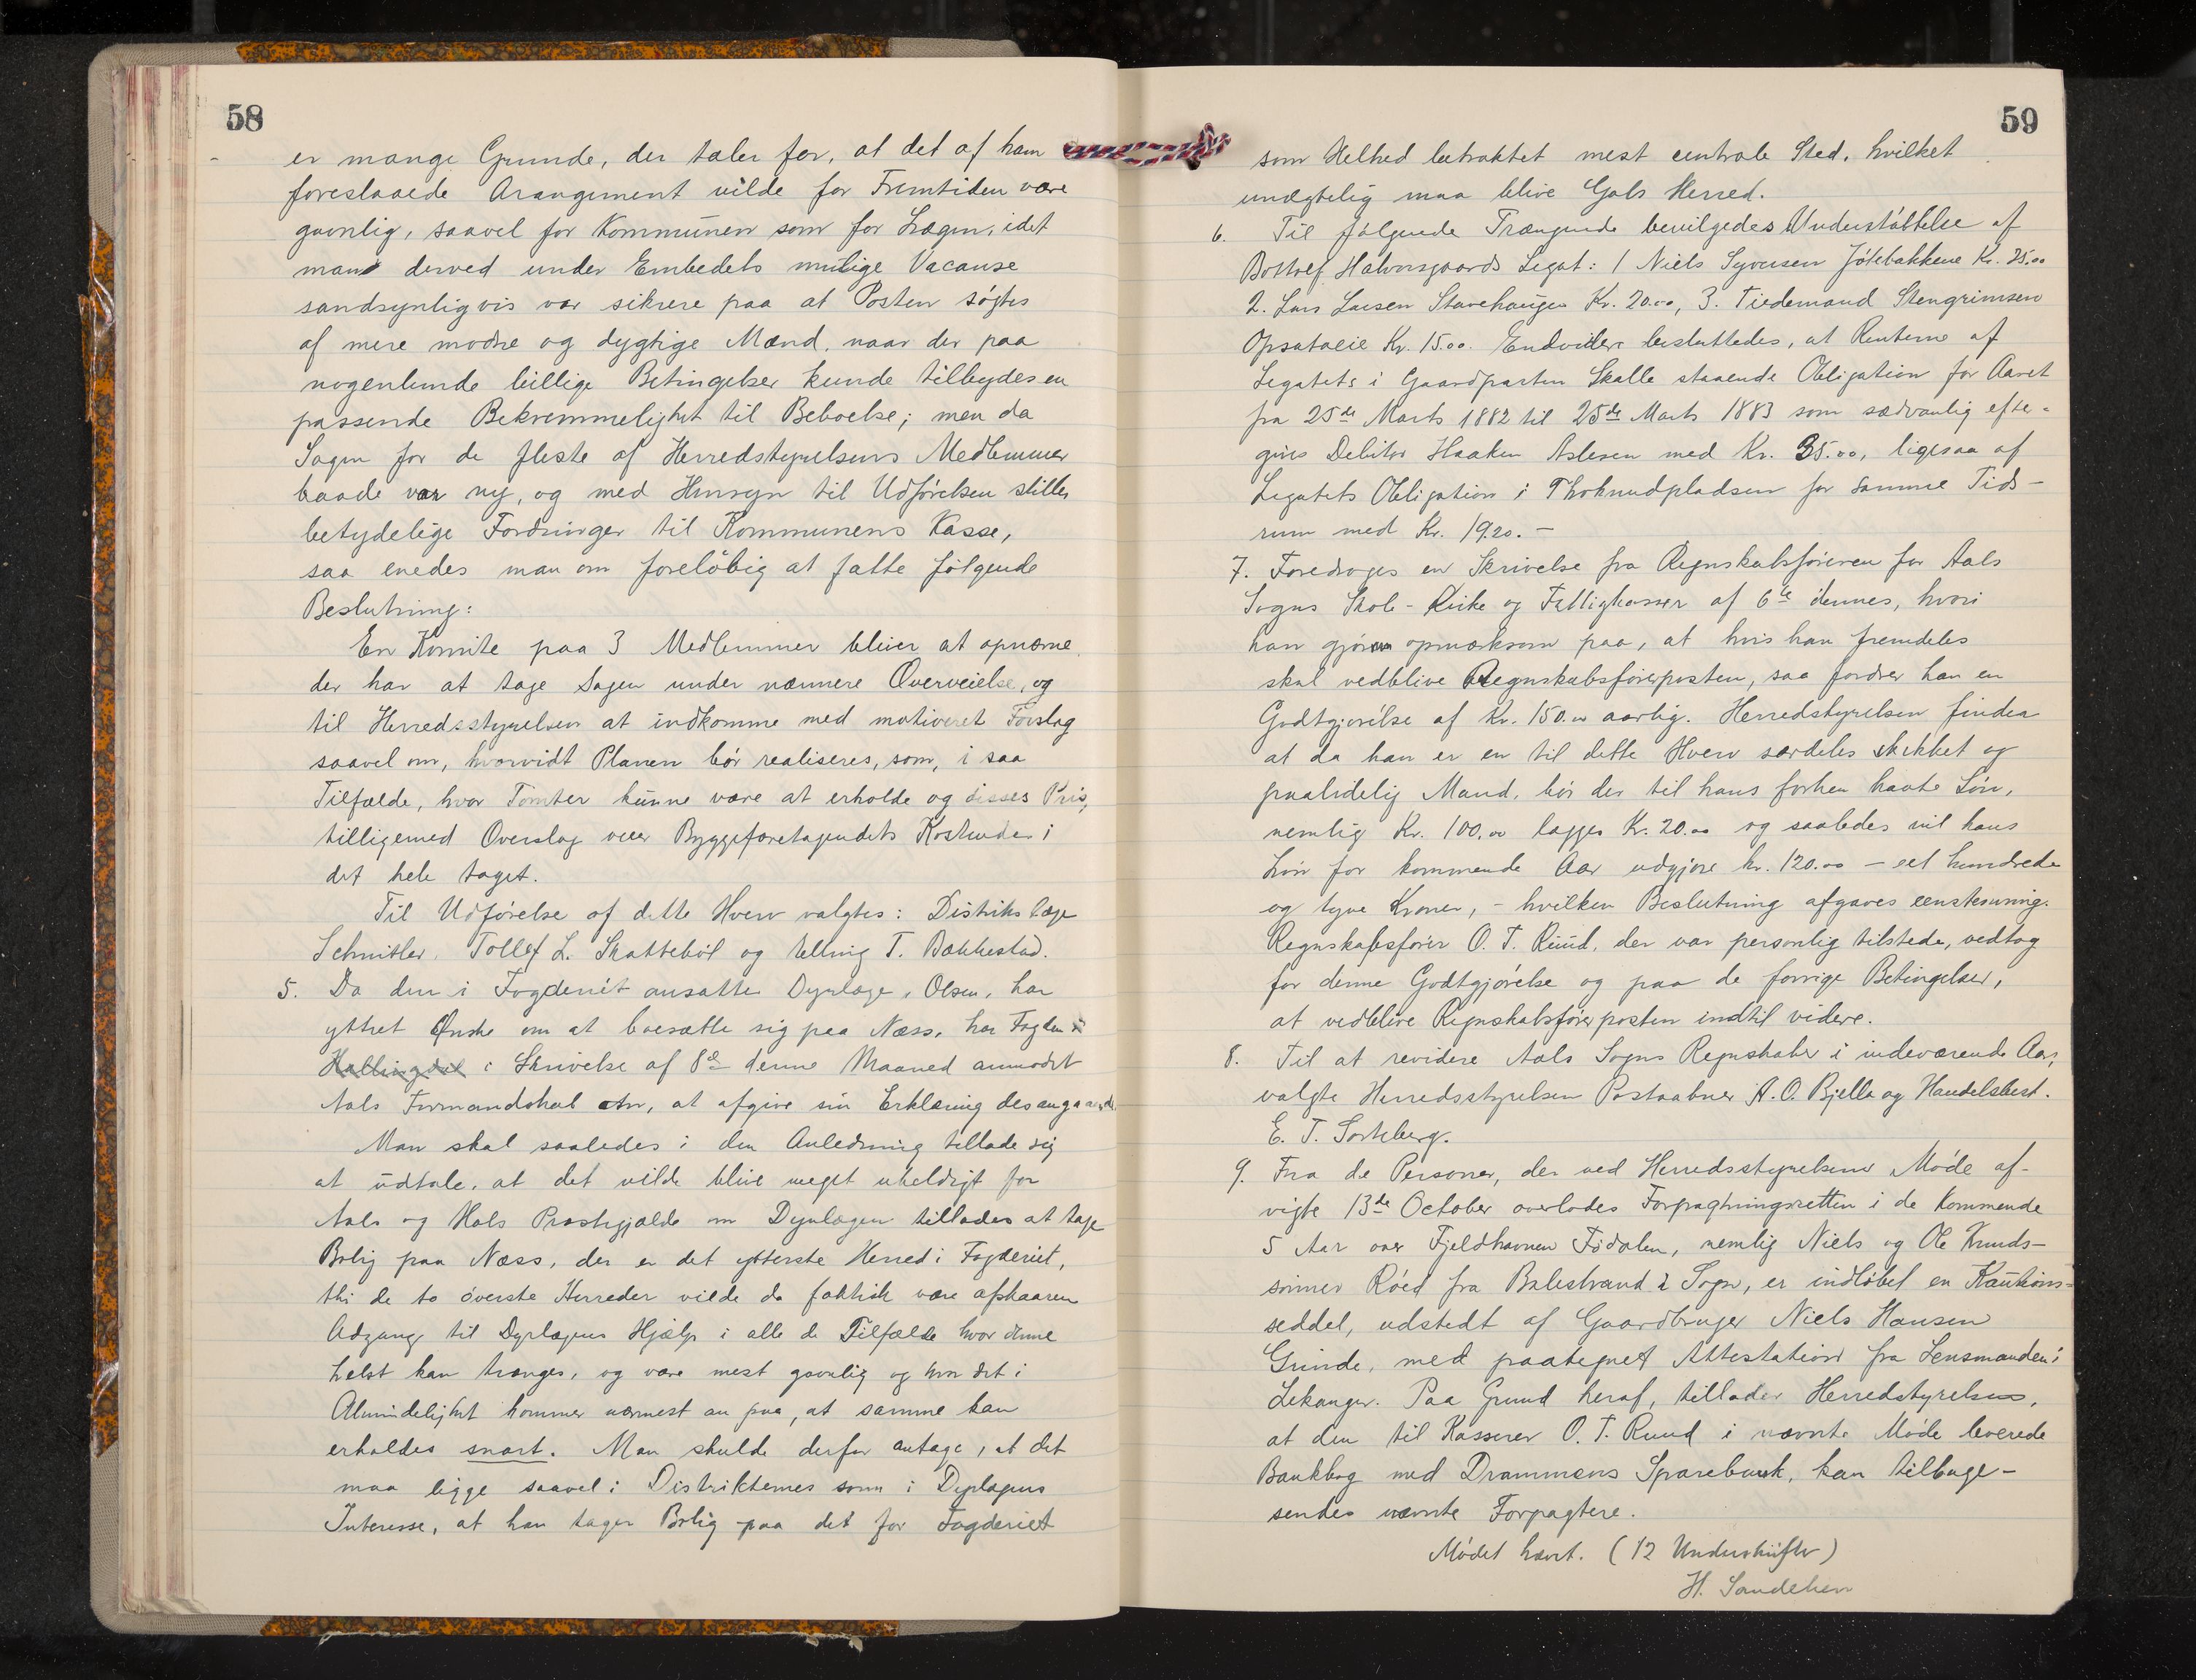 58
er mange Grunde, der taler for, at det af ham
foreslaaede Arangement vilde for Fremtiden være
gavnlig, saavel for Kommunen som for Lægen, idet
man derved under Embedets mulige Vacanse
sandsynligvis var sikrere paa at Posten søgtes
af mere modne og dygtige Mænd, naar der paa
nogenlunde billige Betingelser kunde tilbydes en
passende Bekvemmelighet til Beboelse; men da
Sagen for de fleste af Herredstyrelsens Medlemmer
baade var ny, og med Hensyn til Udførelsen stilles
betydelige Fordringer til Kommunens Kasse,
saa enedes man om foreløbig at fatte følgende
Beslutning:
En Komite paa 3 Medlemmer bliver at opnævne
der har at tage Sagen under nærmere Overveielse, og
til Herredsstyrelsen at indkomme med motiveret Forslag
saavel om, hvorvidt Planen bør realiseres, som, i saa
Tilfælde, hvor Tomter kunne være at erholde og disses Pris,
tilligemed Overslag over Byggeforetagendets Kostende i
det hele taget.
Til Udførelse af dette Hverv valgtes: Distrikslæge
Schnitler, Tollef L. Skattebøl og Elling T. Bækkestad.
5. Da den i Fogderiet ansatte Dyrlæge, Olsen, har
yttret Ønske om at bosætte sig paa Næss, har Fogden i
Hallingdal i Skrivelse af 8de denne Maaned anmodet
Aals Formandskab om, at afgive sin Erklæring desangaaende
Man skal saaledes i den Anledning tillade sig
at udtale, at det vilde blive meget uheldigt for
Aals og Hols Præstegjælde om Dyrlægen tillades at tage
Bolig paa Næss, der er det ytterste Herred i Fogderiet,
thi de to øverste Herreder vilde da faktisk være afskaaren
Adgang til Dyrlægens Hjælp i alle de Tilfælde hvor denne
helst kan trænges, og være mest gavnlig og hvor det i
Almindelighet kommer nærmest an paa, at samme kan
erholdes snart. Man skulde derfor antage, at det
maa ligge saavel i Distrikternes som i Dyrlægens
Interesse, at han tager Bolig paa det for Fogderiet
59
som Helhed betraktet mest centrale Sted, hvilket
unægtelig maa blive Gols Herred.
6. Til følgende Trængende bevilgedes Understøttelse af
Bottolf Halvorsgaards Legat: 1 Niels Syversen Jøtebakkene Kr. 25.00
2. Lars Larsen Stavehaugen Kr. 20.00, 3. Tiedemand Stengrimsen
Opsataeie Kr. 15.00. Endvidere besluttedes, at Renterne af
Legatets i Gaardparten Skalle staaende Obligation for Aaret
fra 25de Marts 1882 til 25de Marts 1883 som sædvanlig efter-
gives Debitor Haaken Aslesen med Kr. 35.00, ligesaa af
Legatets Obligation i Thoknudpladsen for samme Tids-
rum med Kr. 19.20. –
7. Foredroges en Skrivelse fra Regnskabsføreren for Aals
Sogns Skole- Kirke og Fattigkasser af 6te dennes, hvori
han gjør opmærksom paa, at hvis han fremdeles
skal vedblive Regnskabsførerposten, saa fordrer han en
Godtgjørelse af Kr. 150.00 aarlig. Herredstyrelsen finder
at da han er en til dette Hverv særdeles skikket og
paalidelig Mand, bør der til hans forhen havte Løn,
nemlig Kr. 100.00 lægges Kr. 20.00 og saaledes vil hans
Løn for kommende Aar udgjøre kr. 120.00 – eet hundrede
og tyve Kroner, – hvilken Beslutning afgaves eenstemmig.
Regnskabsfører O. T. Ruud, der var personlig tilstede, vedtog
for denne Godtgjørelse og paa de forrige Betingelser,
at vedblive Regnskabsførerposten indtil videre.
8. Til at revidere Aals Sogns Regnskaber i indeværende Aar,
valgte Herredsstyrelsen Postaabner A. O. Bjella og Handelsbest.
E. T. Sorteberg.
9. Fra de Personer, der ved Herredsstyrelsens Møde af-
vigte 13de October overlodes Forpagtningsretten i de kommende
5 Aar over Fjeldhavnen Fødalen, nemlig Niels og Ole Knuds-
sønner Røed fra Balestrand i Sogn, er indløbet en Kautions-
seddel, udstedt af Gaardbruger Niels Hansen
Grinde, med paategnet Attestation fra Lensmanden i
Lekanger. Paa Grund heraf, tillader Herredstyrelsen,
at den til Kasserer O. T. Ruud i nævnte Møde leverede
Bankbog med Drammens Sparebank, kan tilbage-
sendes nævnte Forpagtere.
Mødet hævt. (12 Underskrifter)
H. Sandehen